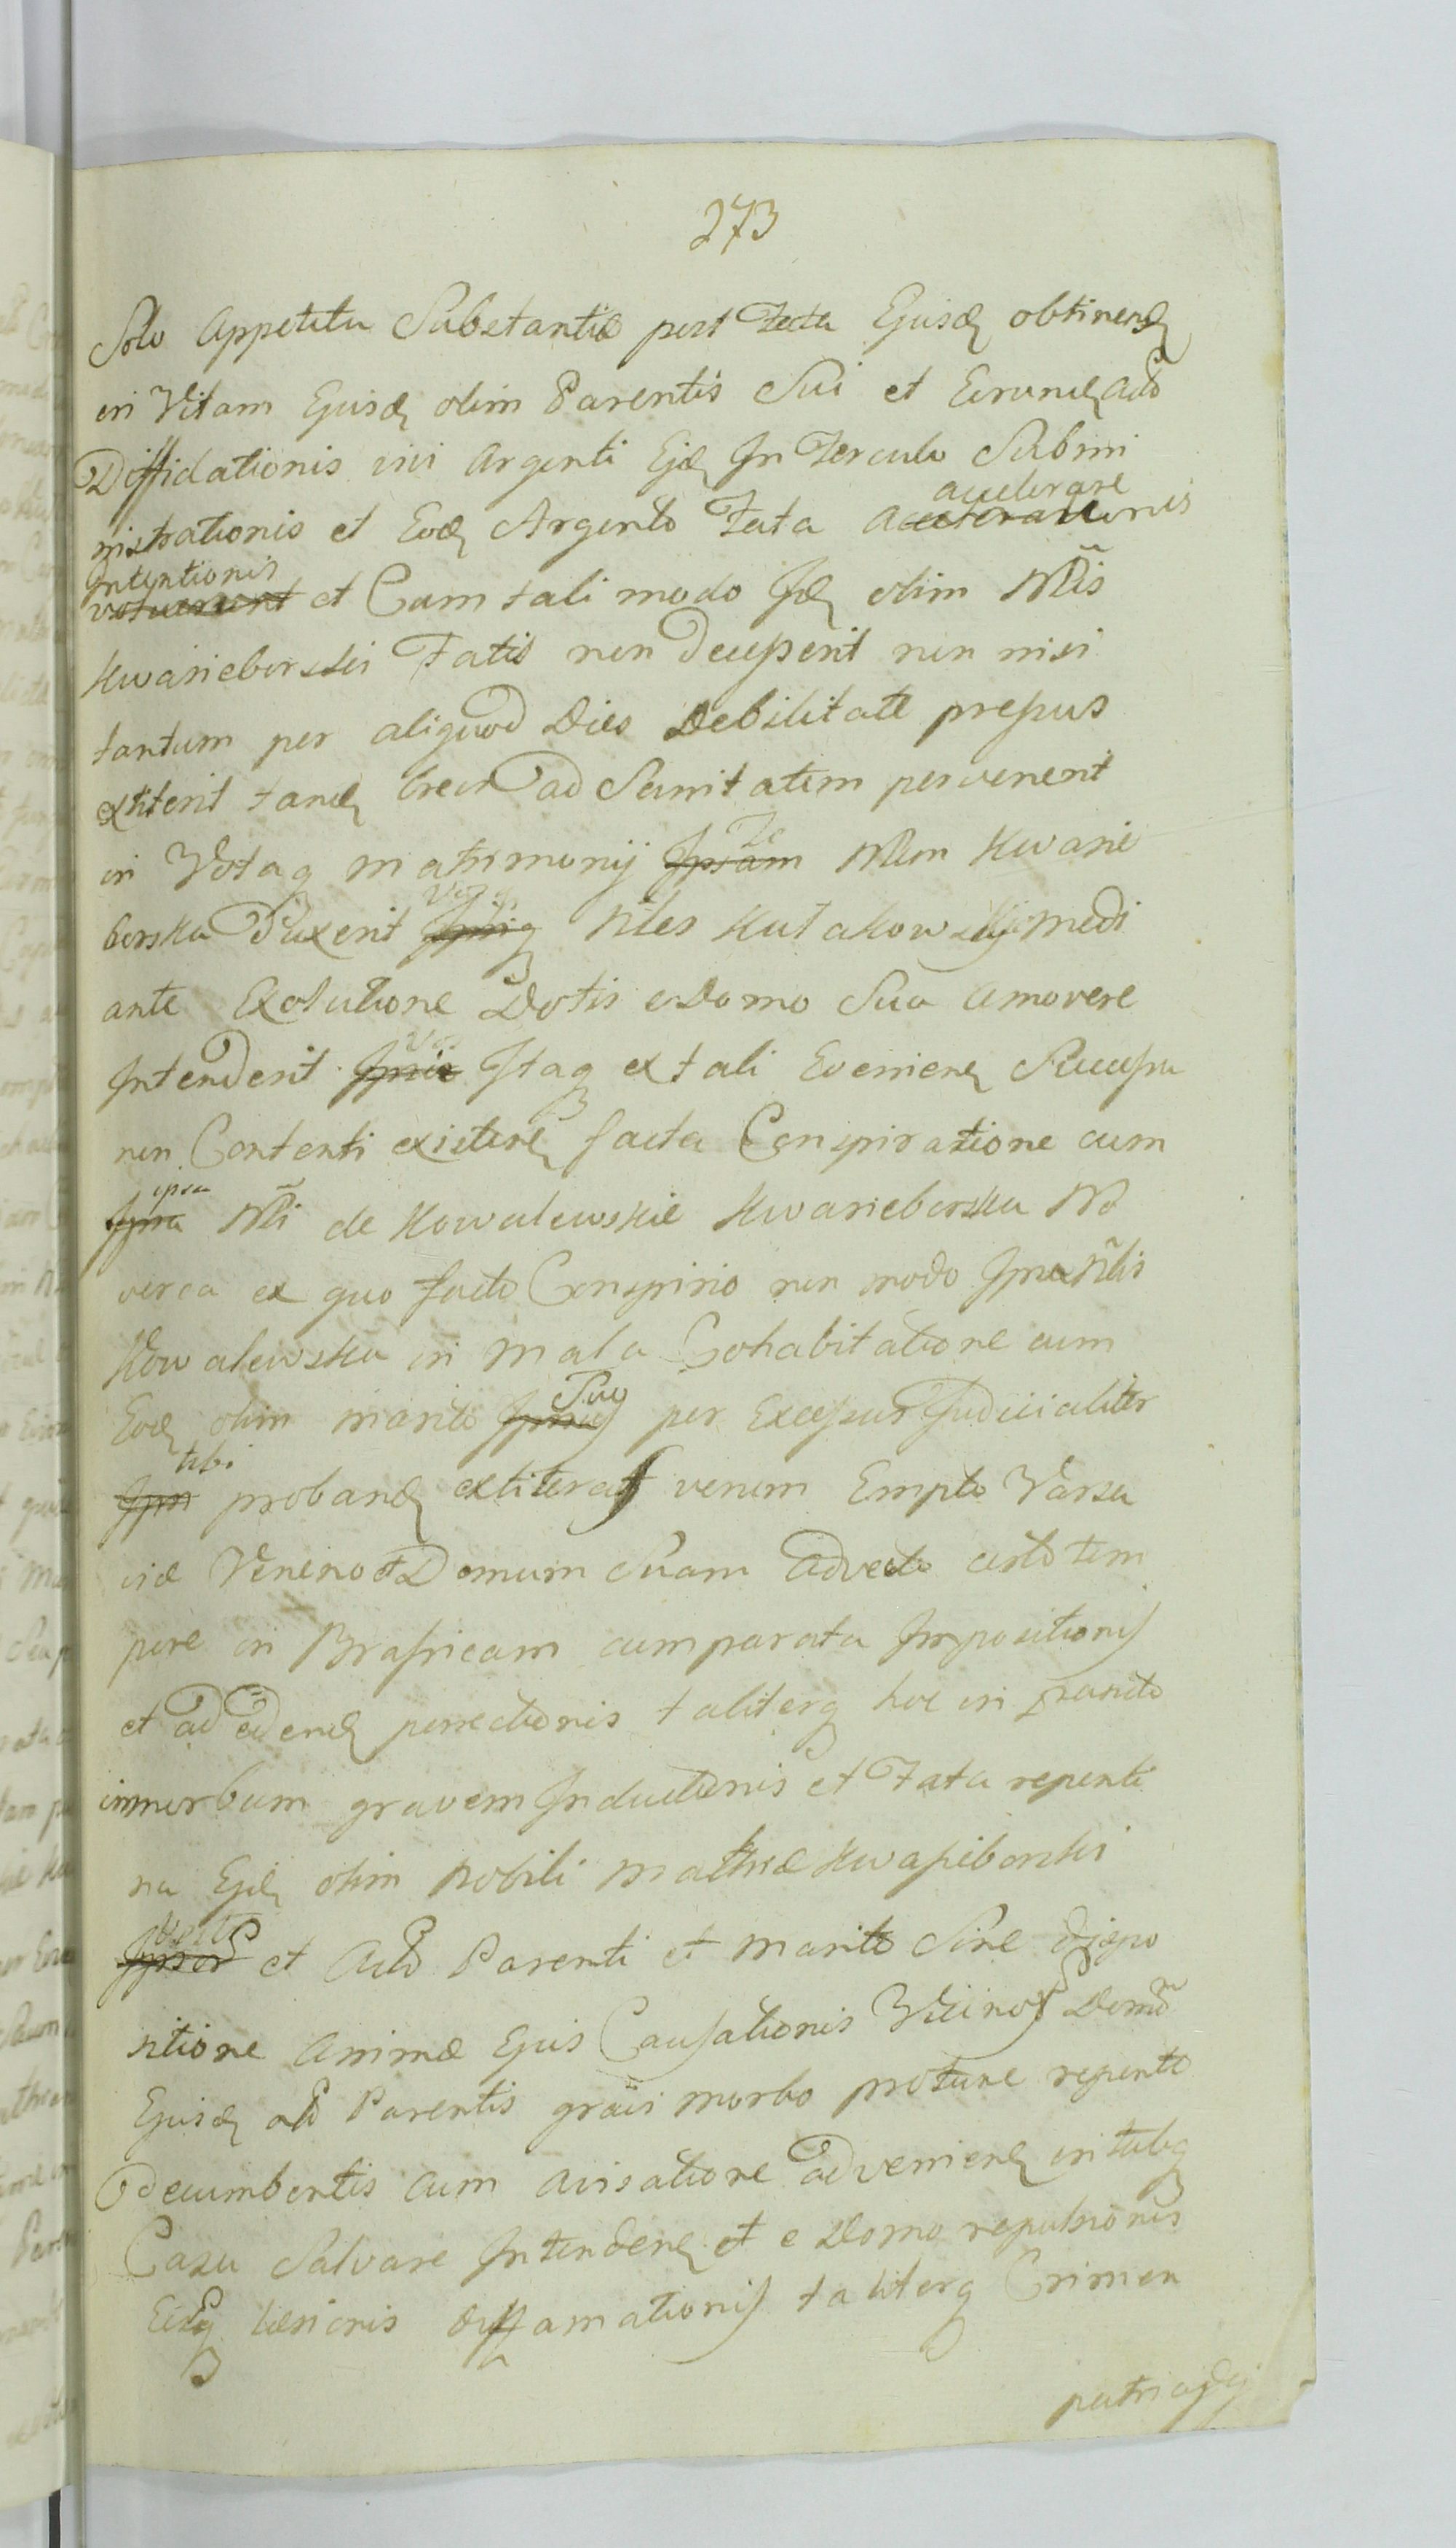 273
Solo Appetitu Substantiæ post Fata Ejusd obtinend
in Vitam Ejusd olim Parentis Sui et Eorund acto
Diffidationis vivi Argenti Ejd In Ferculo Submi
accelerare
nistrationis et Eod Argento Fata Accelerationis
Intentionis
voluerunt et Cum tali modo Id olim Nlis
Kwasieborski Fatis non decesserit non nisi
tantum per aliquod Dies Debilitate pressus
extiterit tand brevi ad Sanitatem pervenerit
Te
in Votaq matrimonij Ipsam Nlem Kwasie
Vos
borska duxerit Nles Kutakowskij medi
ante Exolutione Dotis e Domo Sua amovere
Vos
Intenderit Itaq ex tali Evenien Successu
non Contenti existen facta Conspiratione cum
ipsa
Ipsa Nli de Kowalewskie Kwasieborska No
verca ex quo facto Conspirio non modo Ipsa Nlis
Kowalewska in mala Cohabitatione cum
Suo
Eod olim marito per Excessus Judicialiter
tibi
Ipsi proband extiterat verum Empto Varsa
viæ Veneno et Domum Suam advecto certo tem
pore in Brassicam cum parata Impositionis
et ad edend porrectionis taliterq hoc in transito
in morbum gravem Inductionis et Fata repenti
na Ejd olim Nobili Mathiæ Kwasiborski
et Acto Parenti et marito Sine dispo
sitione Animæ Ejus Causationis Vicinos Domu
Ejusd acto Parentis gravi morbo protunc repente
decumbentis cum avisatione advenien in talq
Casu Salvare Intenden et e Domo repulsionis
Eosq læsionis diffamationis taliterq Crimen
patricidij